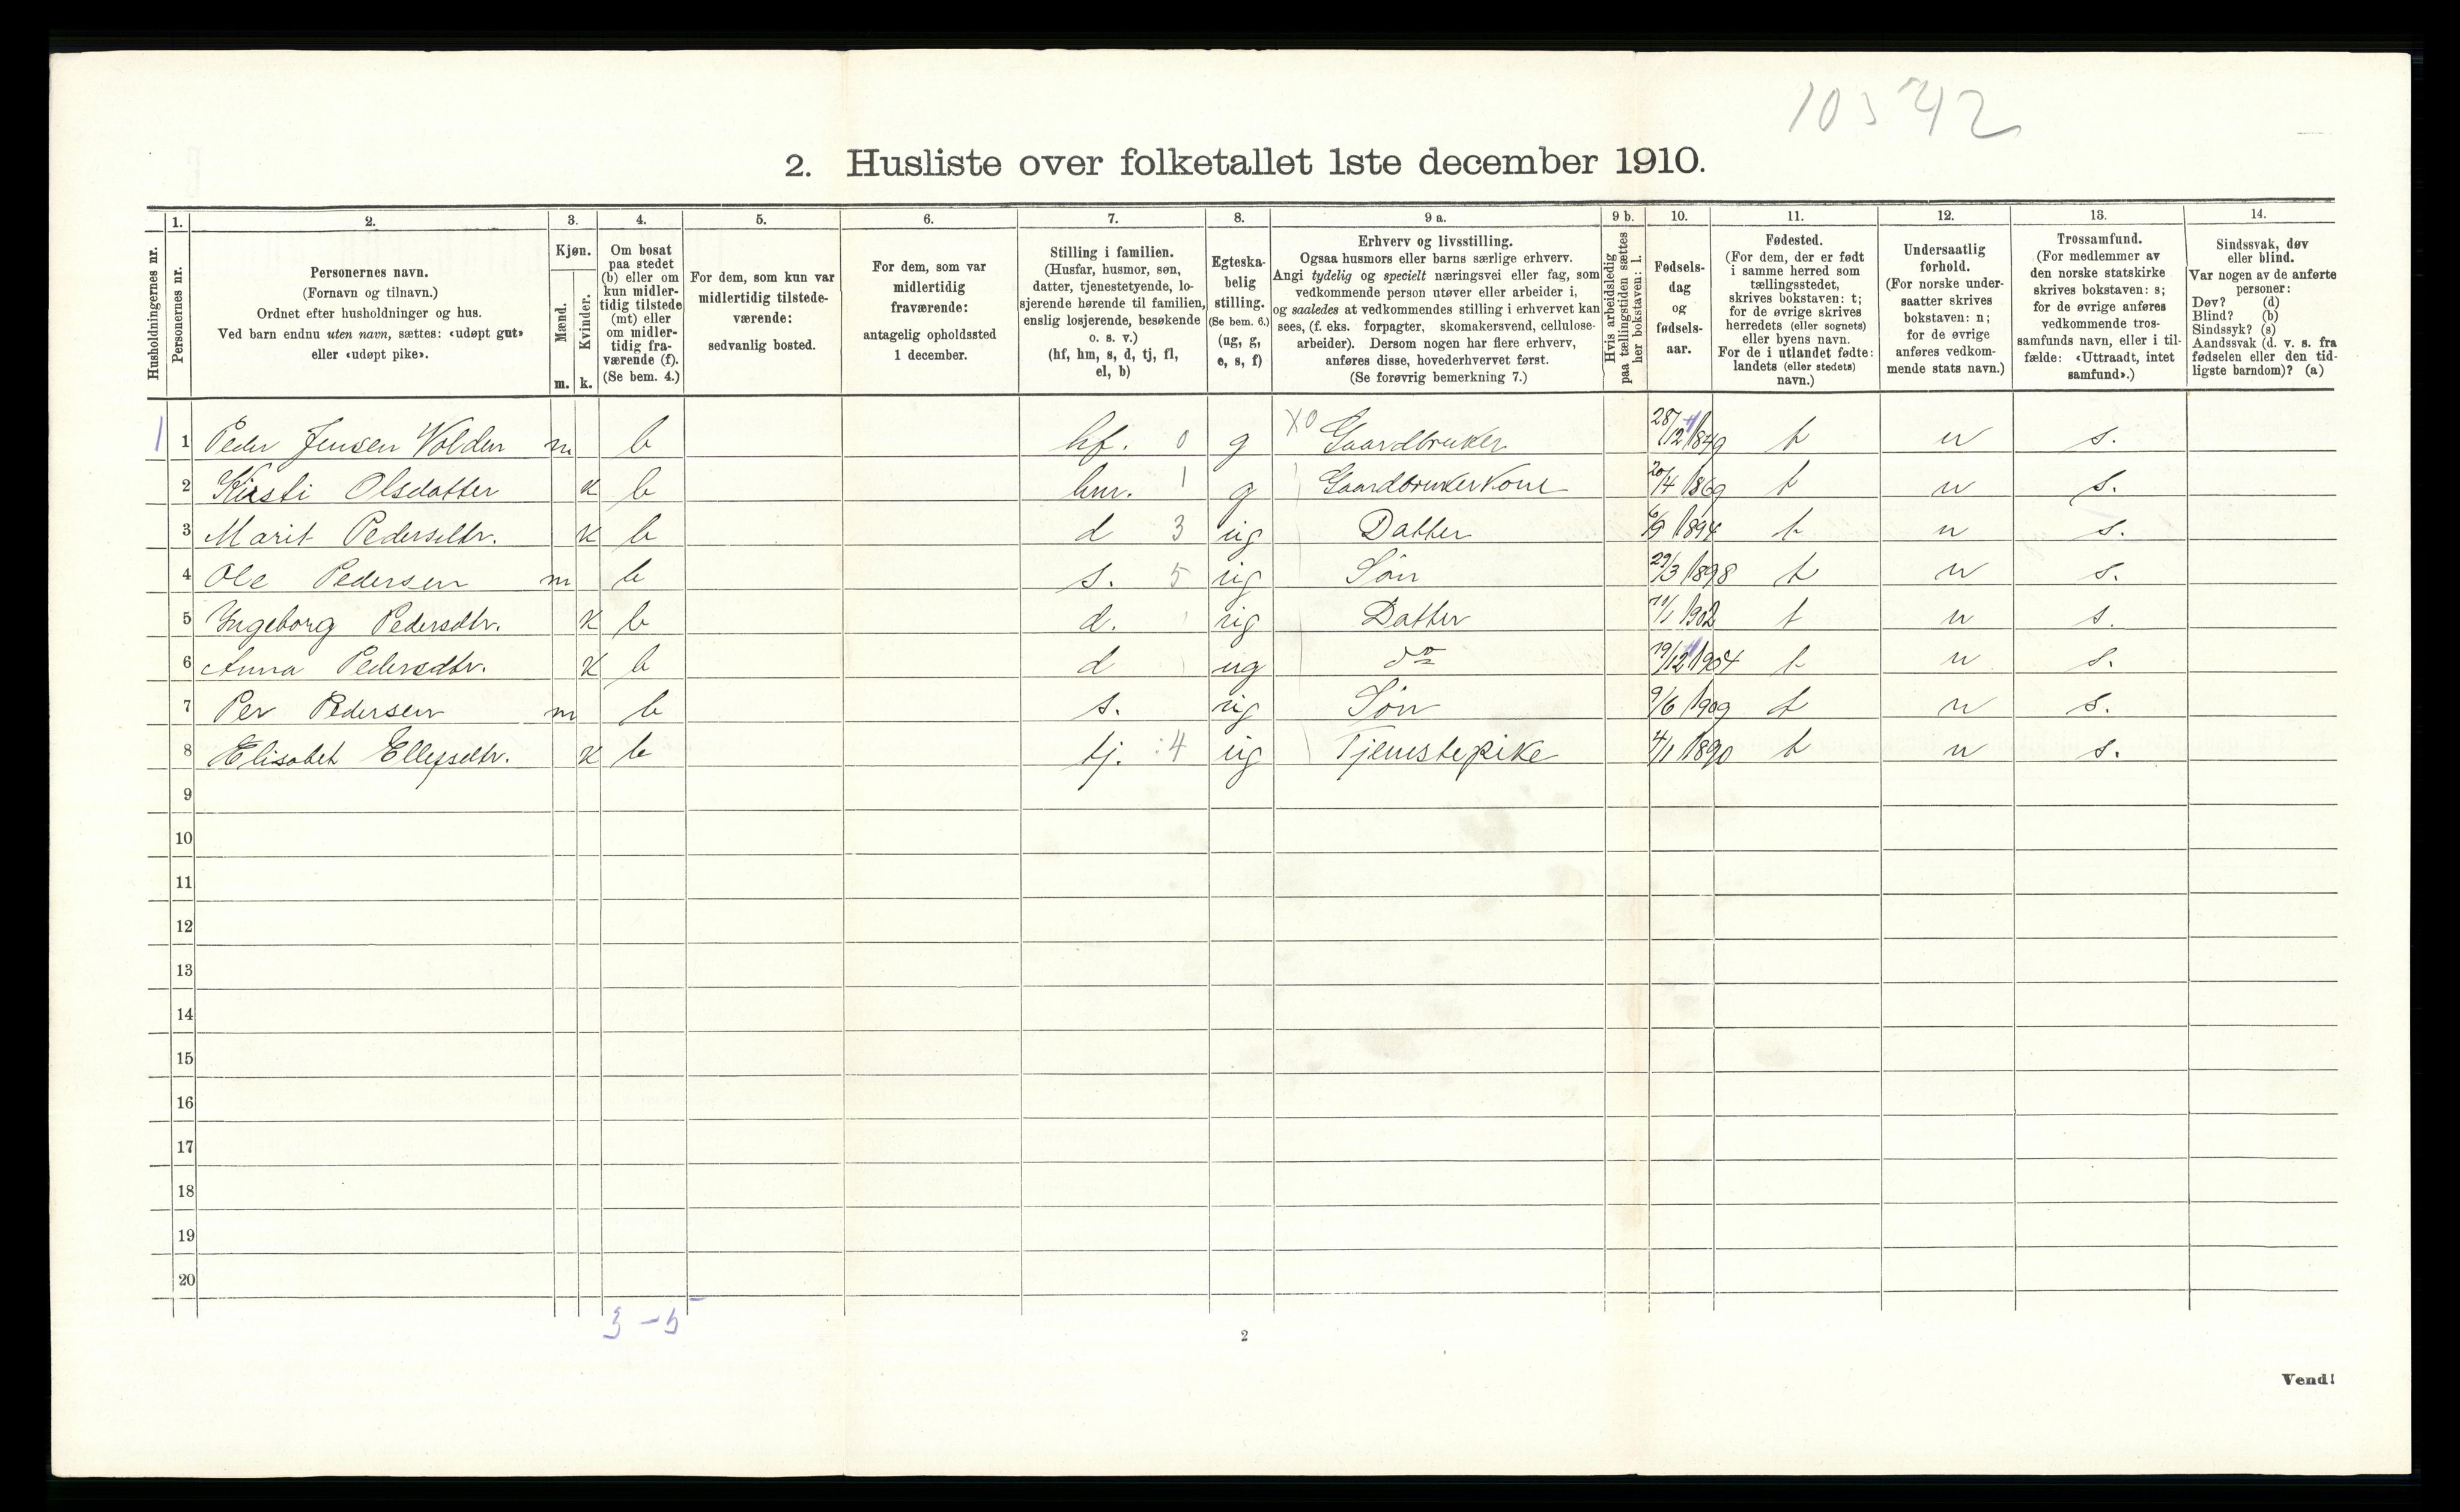 10542
2. Husliste over folketallet 1ste december 1910.
1. 2. 3. 4. 5. 6. 7. 8. 9 a. 9 b. 10. 11. 12. 13. 14.
Husholdningernes nr.
Personernes nr.
Personernes navn.
(Fornavn og tilnavn.)
Ordnet efter husholdninger og hus.
Ved barn endnu uten navn, sættes: «udøpt gut»
eller «udøpt pike».
Kjøn.
Mænd.
Kvinder.
m. k.
Om bosat
paa stedet
(b) eller om
kun midler-
tidig tilstede
(mt) eller
om midler-
tidig fra-
værende (f).
(Se bem. 4.)
For dem, som kun var
midlertidig tilstede-
værende:
sedvanlig bosted.
For dem, som var
midlertidig
fraværende:
antagelig opholdssted
1 december.
Stilling i familien.
(Husfar, husmor, søn,
datter, tjenestetyende, lo-
sjerende hørende til familien,
enslig losjerende, besøkende
o. s. v.)
(hf, hm, s, d, tj, fl,
el, b)
Egteska-
belig
stilling.
(Se bem. 6.)
(ug, g,
e, s, f)
Erhverv og livsstilling.
Ogsaa husmors eller barns særlige erhverv.
Angi tydelig og specielt næringsvei eller fag, som
vedkommende person utøver eller arbeider i,
og saaledes at vedkommendes stilling i erhvervet kan
sees, (f. eks. forpagter, skomakersvend, cellulose-
arbeider). Dersom nogen har flere erhverv,
anføres disse, hovederhvervet først.
(Se forøvrig bemerkning 7.)
Hvis arbeidsledig
paa tællingstiden sættes
her bokstaven: l.
Fødsels-
dag
og
fødsels-
aar.
Fødested.
(For dem, der er født
i samme herred som
tællingsstedet,
skrives bokstaven: t;
for de øvrige skrives
herredets (eller sognets)
eller byens navn.
For de i utlandet fødte:
landets (eller stedets)
navn.)
Undersaatlig
forhold.
(For norske under-
saatter skrives
bokstaven: n;
for de øvrige
anføres vedkom-
mende stats navn.)
Trossamfund.
(For medlemmer av
den norske statskirke
skrives bokstaven: s;
for de øvrige anføres
vedkommende tros-
samfunds navn, eller i til-
fælde: «Uttraadt, intet
samfund».)
Sindssvak, døv
eller blind.
Var nogen av de anførte
personer:
Døv? (d)
Blind? (b)
Sindssyk? (s)
Aandssvak (d. v. s. fra
fødselen eller den tid-
ligste barndom)? (a)
1 1 Peder Jensen Volden m b hf. 0 g X0 Gaardbruker 28/12 1849 t n s.
2 Kirsti Olsdatter k b hm. 1 g Gaardbrukerkone 20/4 1869 t n s.
3 Marit Pedersdtr. k b d 3 ug Datter 6/9 1894 t n s.
4 Ole Pedersen m b s. 5 ug Søn 29/3 1898 t n s.
5 Ingeborg Pedersdtr. k b d. ug Datter 11/1 1902 t n s.
6 Anna Pedersdtr. k b d ug do 19/12 1904 t n s.
7 Per Pedersen m b s. ug Søn 9/6 1909 t n s.
8 Elisabet Ellefsdtr. k b tj. 4 ug Tjenestepike 4/1 1890 t n s.
9
10
11
12
13
14
15
16
17
18
19
20
3 – 5
2
Vend!